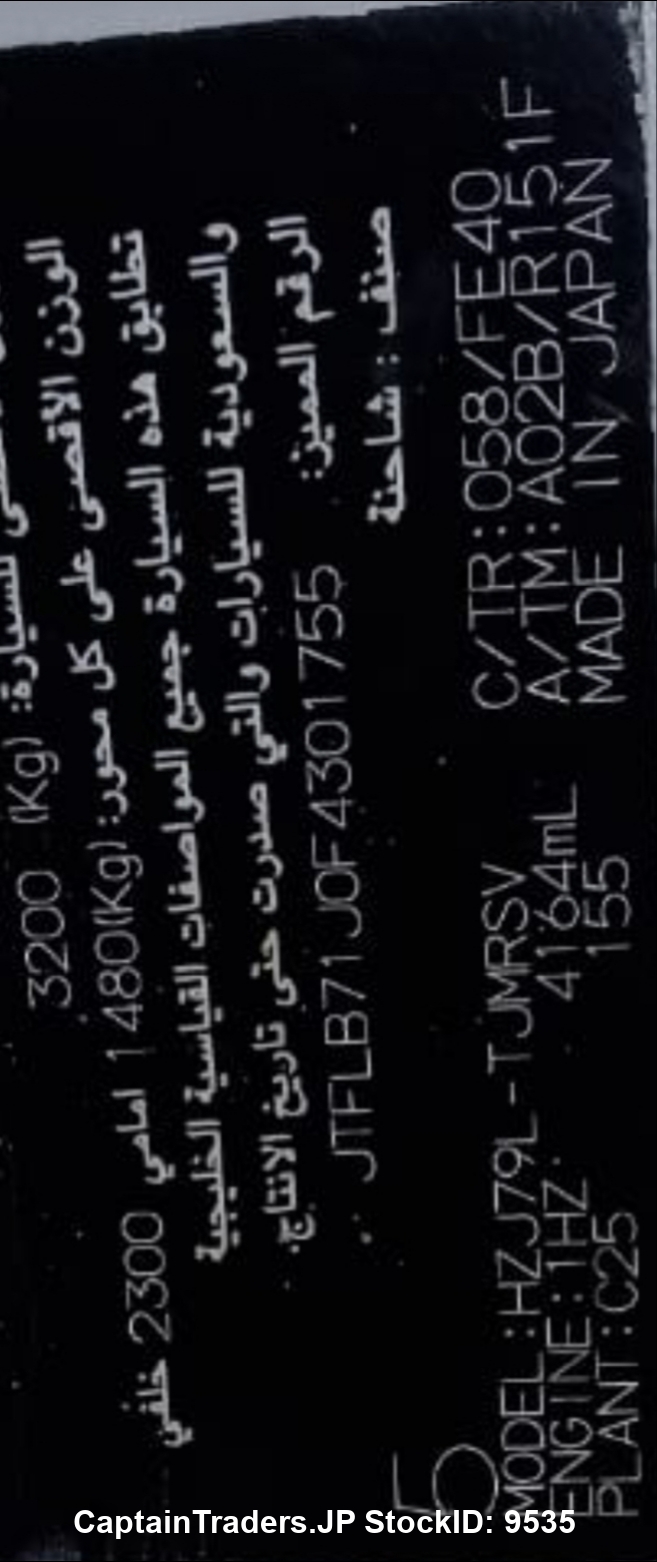 للسيارة: 3200 (Kg)
الوزن الاقصى على كل محور: 1480(Kg) امامي 2300 خلفي
تطابق هذه السيارة جميع المواصفات القياسية الخليجية
والسعودية للسيارات والتي صدرت حتى تاريخ الانتاج.
الرقم المميز: JTFLB71J0F4301755
صنف : شاحنة
5
MODEL:HZJ79L-TJMRSV C/TR:058/FE40
ENGINE:1HZ 4164mL A/TM:A02B/R151F
PLANT:C25 155 MADE IN JAPAN
CaptainTraders.JP StockID: 9535